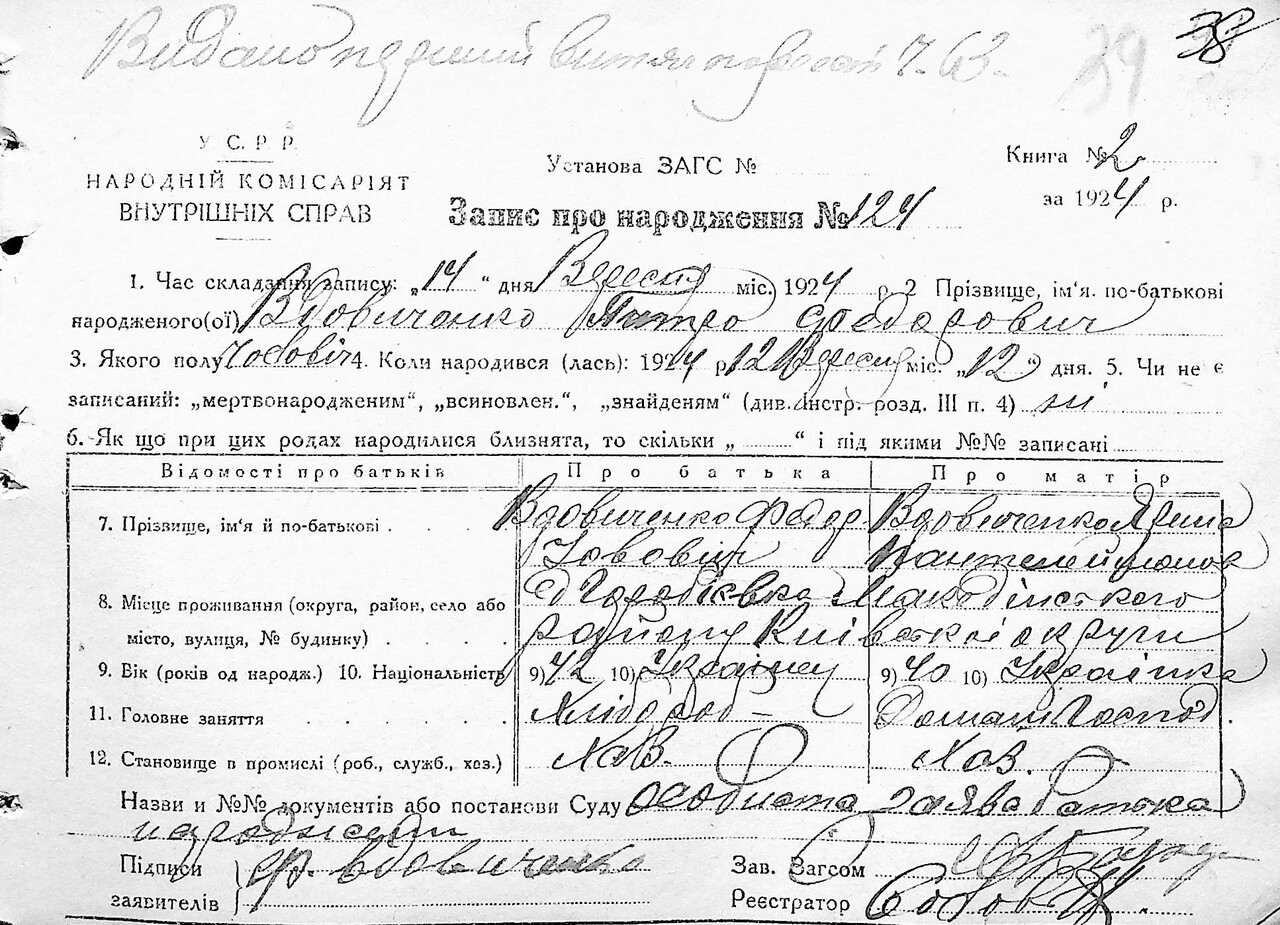 Видано перший витяг ч. 63.
39 38
У. С. Р. Р.
НАРОДНІЙ КОМІСАРІЯТ
ВНУТРІШНІХ СПРАВ
Установа ЗАГС №
Книга № 2
за 1924 р.
Запис про народження № 124
1. Час складання запису: „14“ дня Вересня міс. 1924 р. 2 Прізвище, ім'я. по-батькові
народженого(ої) Вдовиченко Питро Федорович
3. Якого полу Чоловіч 4. Коли народився (лась): 1924 р 12 Вересня міс. „12“ дня. 5. Чи не є
записаний: „мертвонародженим“, „всиновлен.“, „знайденям“ (див. інстр. розд. III п. 4) ні
6. Як що при цих родах народилися близнята, то скільки „ “ і під якими №№ записані
Відомості про батьків Про батька Про матір
7. Прізвище, ім'я й по-батькові . . . . Вдовиченко Федор Вдовиченко Ярина
Іовович Пантелеймонов
8. Місце проживання (округа, район, село або с. Городіївка Маковінського
місто, вулиця, № будинку) . . . . району Київської округи
9. Вік (років од народж.) 10. Національність 9) 42 10) Українец 9) 40 10) Українка
11. Головне заняття . . . . . . Хлібороб – Домаш Господ.
12. Становище в промислі (роб., служб., хаз.) Хаз. Хаз.
Назви и №№ документів або постанови Суду Особиста заява батька
народженого
Підписи Ф. Вдовиченко Зав. Загсом
заявителів Реєстратор